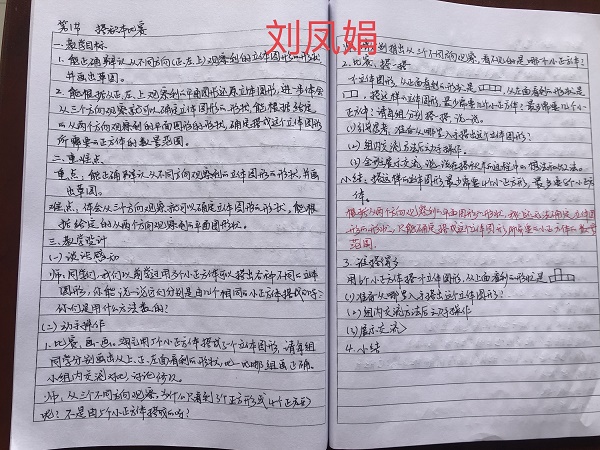 刘凤娟
第1节 搭积木比赛
一.教学目标
1.能正确辨认从不同方向(正.左.上)观察到的立体图形的形状
并画出草图。
2.能根据从正.左.上观察到的平面图形还原立体图形,进一步体会
从三个方向观察就可以确定立体图形的形状,能根据给定
的从两个方向观察到的平面图形的形状,确定搭成这个立体图形
所需要的正方体的数量范围。
二.重难点
重点:能正确辨认从不同方向观察到的立体图形的形状,并画
出草图。
难点:体会从三个方向观察就可以确定立体图形的形状,能根
据给定的从两个方向观察到的平面图形形状
三.教学设计
(一)谈话感知
师:同学们,我们以前学过用多个小正方体可以搭出各种不同的立体
图形,你能说一说它们分别是由几个相同的小正方体搭成的吗?
你们是用什么方法数的?
(二)动手操作
1.比赛,画一画。
小组内交流对比,讨论修改。
师:从三个不同方向观察,为什么只看到3个正方形或4个正方形
呢?不是由5个小正方体搭成的吗?
2.比赛,搭一搭
一个立体图形,从正面看到的形状是
,搭这样的立体图形,最少需要几个小正方体?最多需要几个小
正方体?请每组分别搭一搭,说一说。
(1)引导思考:准备从哪里入手搭出这个立体图形?
(2)组内交流方法后动手操作。
(3)全班展示交流,说一说在搭积木的过程中的想法和做法。
小结:搭这样的立体图形,最少需要4个小正方形,最多需要5个小正方
体。
根据从两个方向观察到的平面图形的形状,
形的形状,只能确定搭成这个立体图形所需要的小正方体的数量
范围。
3.谁搭得多
用5个小正方体搭一个立体图形,从上面看到的形状是
(1)准备从哪里入手搭出这个立体图形?
(2)组内交流方法后动手操作
(3)展示交流
4.小结